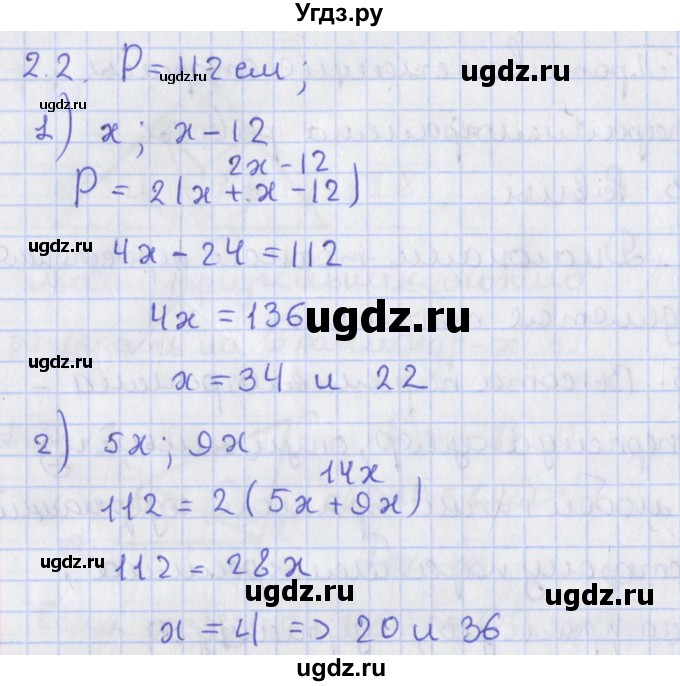 Угдз.ру
2.2. P = 112 см;
ugdz.ru
ugdz.ru
1) x; x - 12
2x - 12
P = 2(x + x - 12)
ugdz.ru
ugdz.ru
4x - 24 = 112
ugdz.ru
4x = 136
ugdz.ru
ugdz.ru
x = 34 и 22
2) 5x; 9x
ugdz.ru
14x
112 = 2(5x + 9x)
ugdz.ru
112 = 28x
ugdz.ru
ugdz.ru
ugdz.ru
x = 4 => 20 и 36
ugdz.ru